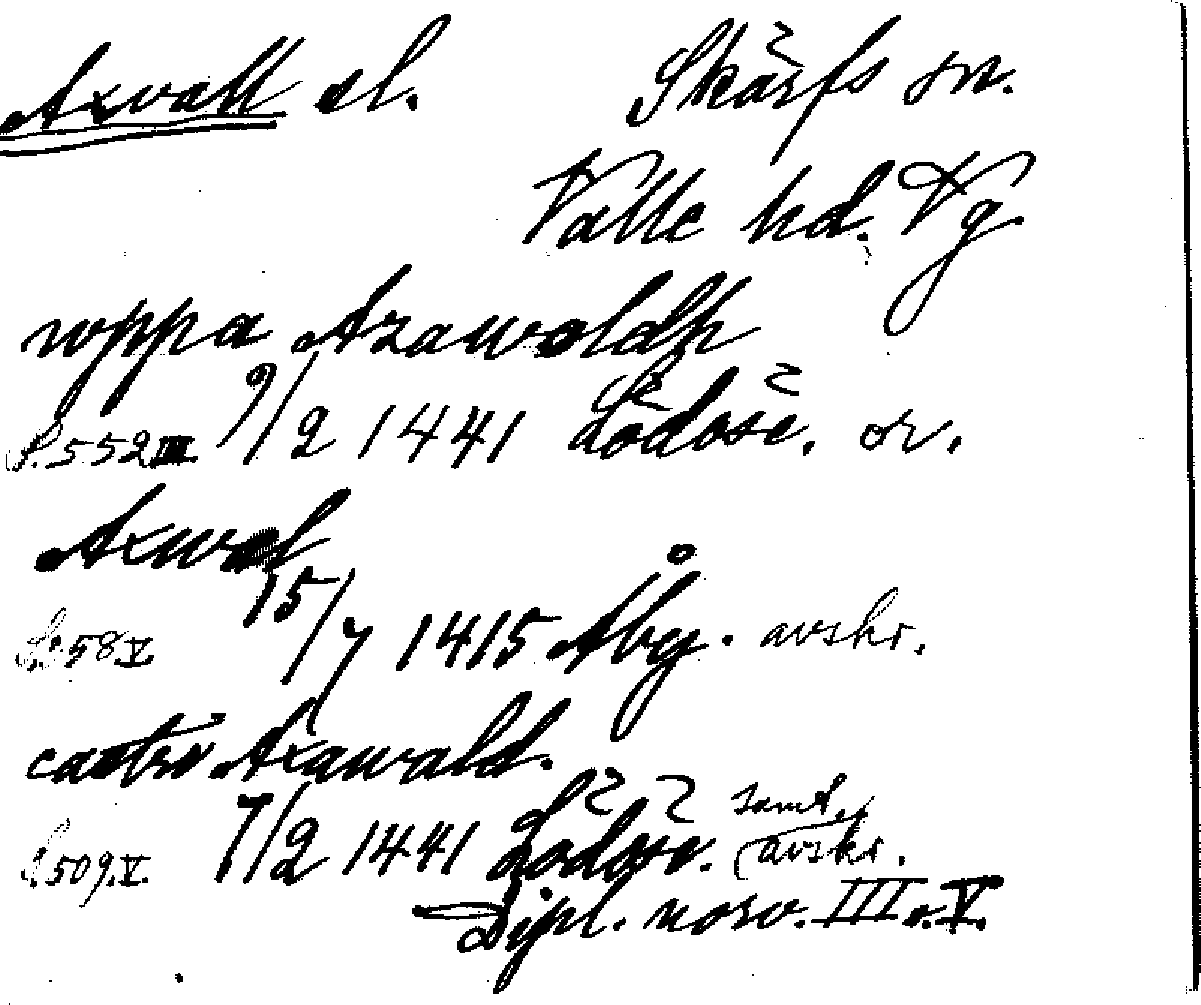 Axvall sl. Skärfs sn.
Valle hd. Vg.
uppa Axawaldh
S. 552 III 9/2 1441 Lödöse. or.
Axwal
S. 58 V. 15/7 1415 Åby. avskr.
castro Axawald.
S. 509. V. 7/2 1441 Lödöse. (samt. avskr.
Dipl. norv. III o. V.